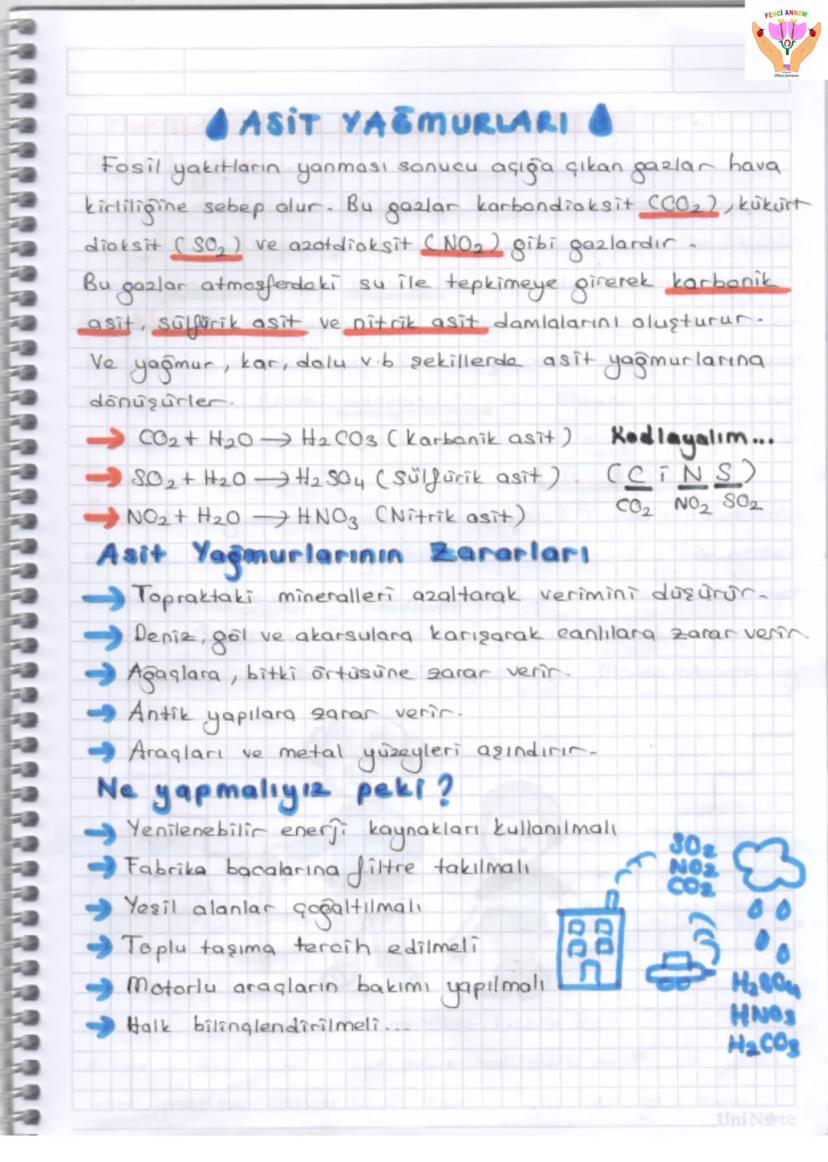 FENCİ ANNEM
ASİT YAĞMURLARI
Fosil yakıtların yanması sonucu açığa çıkan gazlar hava
kirliliğine sebep olur. Bu gazlar karbondioksit (CO₂), kükürt
dioksit (SO₂) ve azotdioksit (NO₂) gibi gazlardır.
Bu gazlar atmosferdaki su ile tepkimeye girerek karbonik
asit, sülfürik asit ve nitrik asit damlalarını oluşturur.
Ve yağmur, kar, dolu v.b şekillerde asit yağmurlarına
dönüşürler.
→ CO₂ + H₂O → H₂CO₃ (Karbonik asit) Kodlayalım...
→ SO₂ + H₂O → H₂SO₄ (Sülfürik asit) (C İ N S)
CO₂ NO₂ SO₂
→ NO₂ + H₂O → HNO₃ (Nitrik asit)
Asit Yağmurlarının Zararları
→ Topraktaki mineralleri azaltarak verimini düşürür.
→ Deniz, göl ve akarsulara karışarak canlılara zarar verir.
→ Ağaçlara, bitki örtüsüne zarar verir.
→ Antik yapılara zarar verir.
→ Araçları ve metal yüzeyleri aşındırır.
Ne yapmalıyız peki?
→ Yenilenebilir enerji kaynakları kullanılmalı
→ Fabrika bacalarına filtre takılmalı
→ Yeşil alanlar çoğaltılmalı
→ Toplu taşıma tercih edilmeli
→ Motorlu araçların bakımı yapılmalı
→ Halk bilinçlendirilmeli...
SO₂
NO₂
CO₂
H₂SO₄
HNO₃
H₂CO₃
UniNote